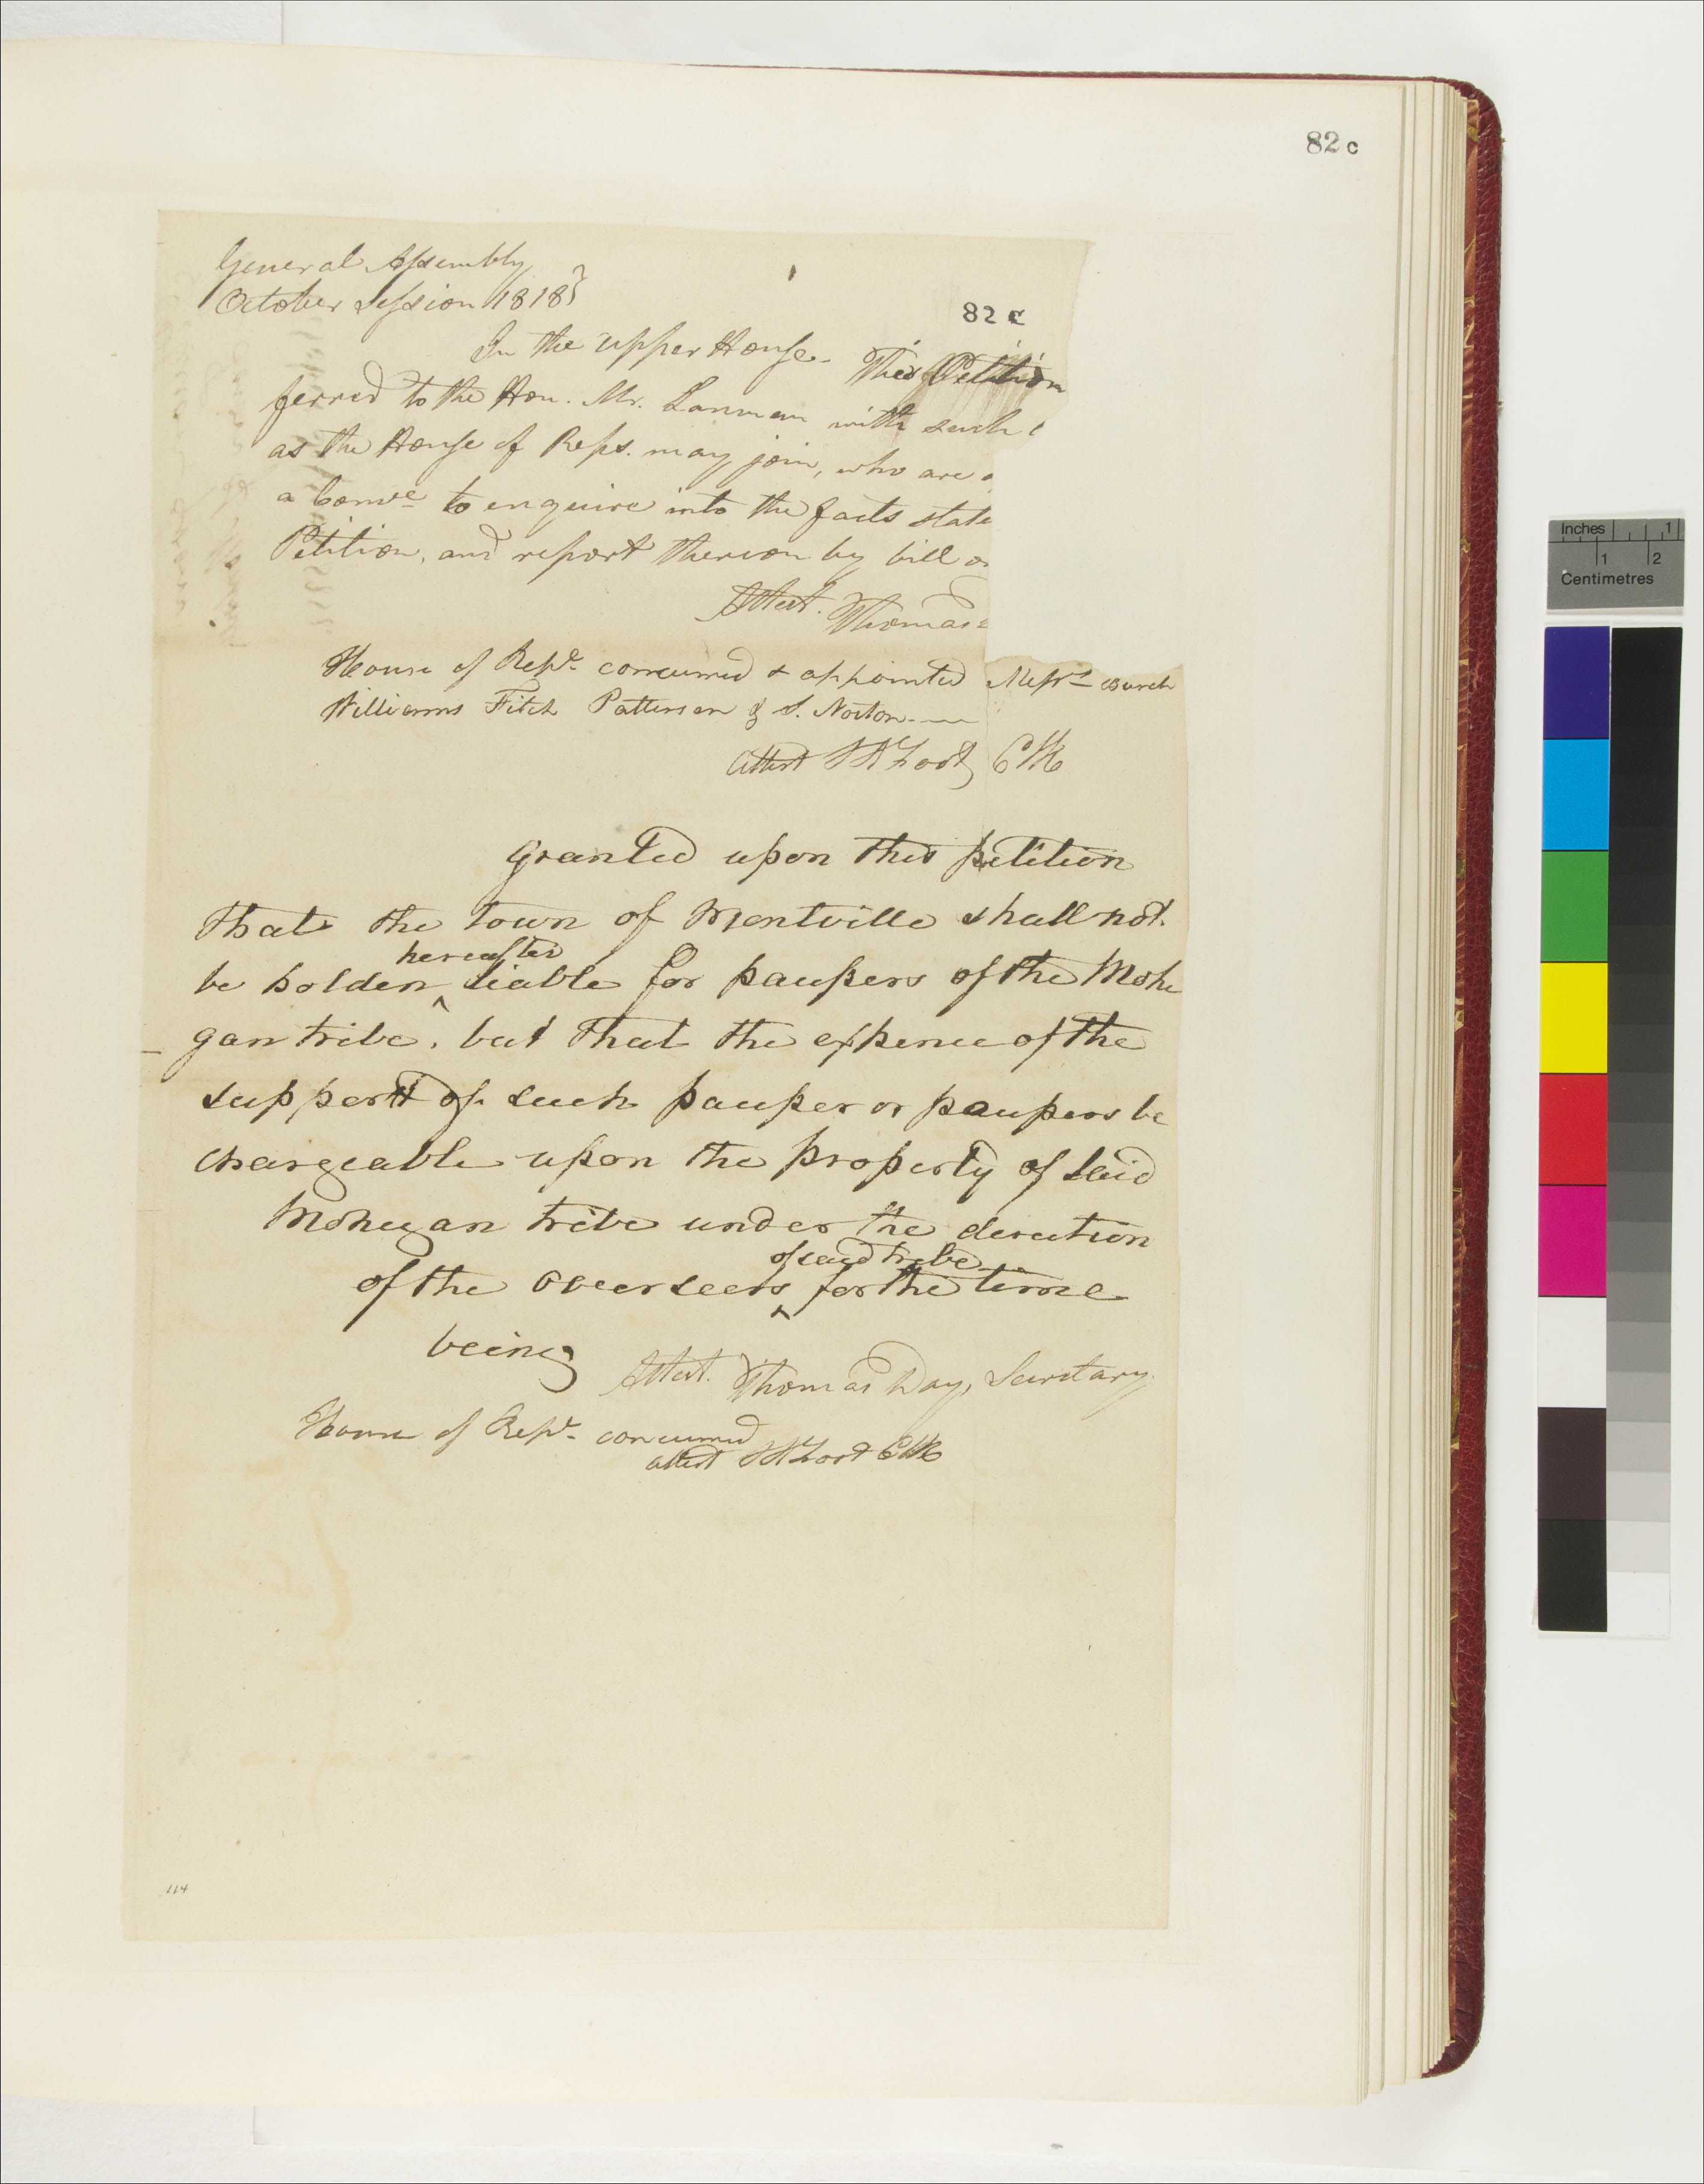 82 c
General Assembly
October Session 1818}
82 c
In the Upper House. This Petition
ferred to the Hon. Mr. Lanman with such
as the House of Reps. may join, who are
a Comee to enquire into the facts state
Petition, and report thereon by bill o
Attest. Thomas
House of Reps. concurred & appointed Messrs Burch
Williams Fitch Patterson & S. Norton.
Attest S A Foot Clk
Granted upon this petition
that the town of Montville shall not
hereafter
be holden ^ liable for paupers of the Mohe
gan tribe, but that the expence of the
support of such pauper or paupers be
chargeable upon the property of said
Mohegan tribe under the direction
of said tribe
of the overseers ^ for the time
being
Attest. Thomas Day, Secretary.
House of Reps. concurred
attest S A Foot Clk
114
Inches 1
1 2
Centimetres